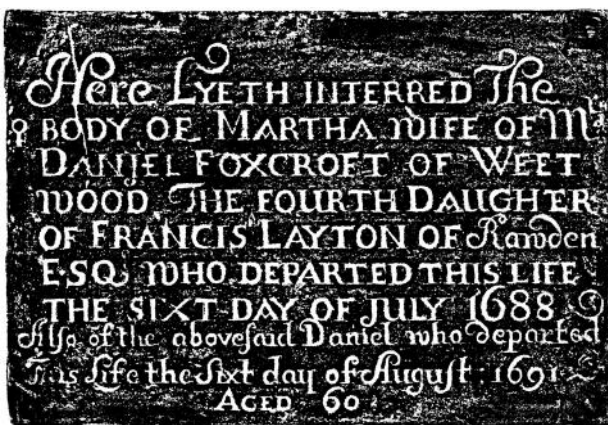 Here LYETH INTERRED The
BODY OF MARTHA WIFE OF Mr
DANIEL FOXCROFT OF WEET
WOOD THE FOURTH DAUGHTER
OF FRANCIS LAYTON OF Rawden
ESQ WHO DEPARTED THIS LIFE
THE SIXT DAY OF JULY 1688
Also of the aboveſaid Daniel who departed
This Life the Sixt day of Auguſt: 1691
AGED 60